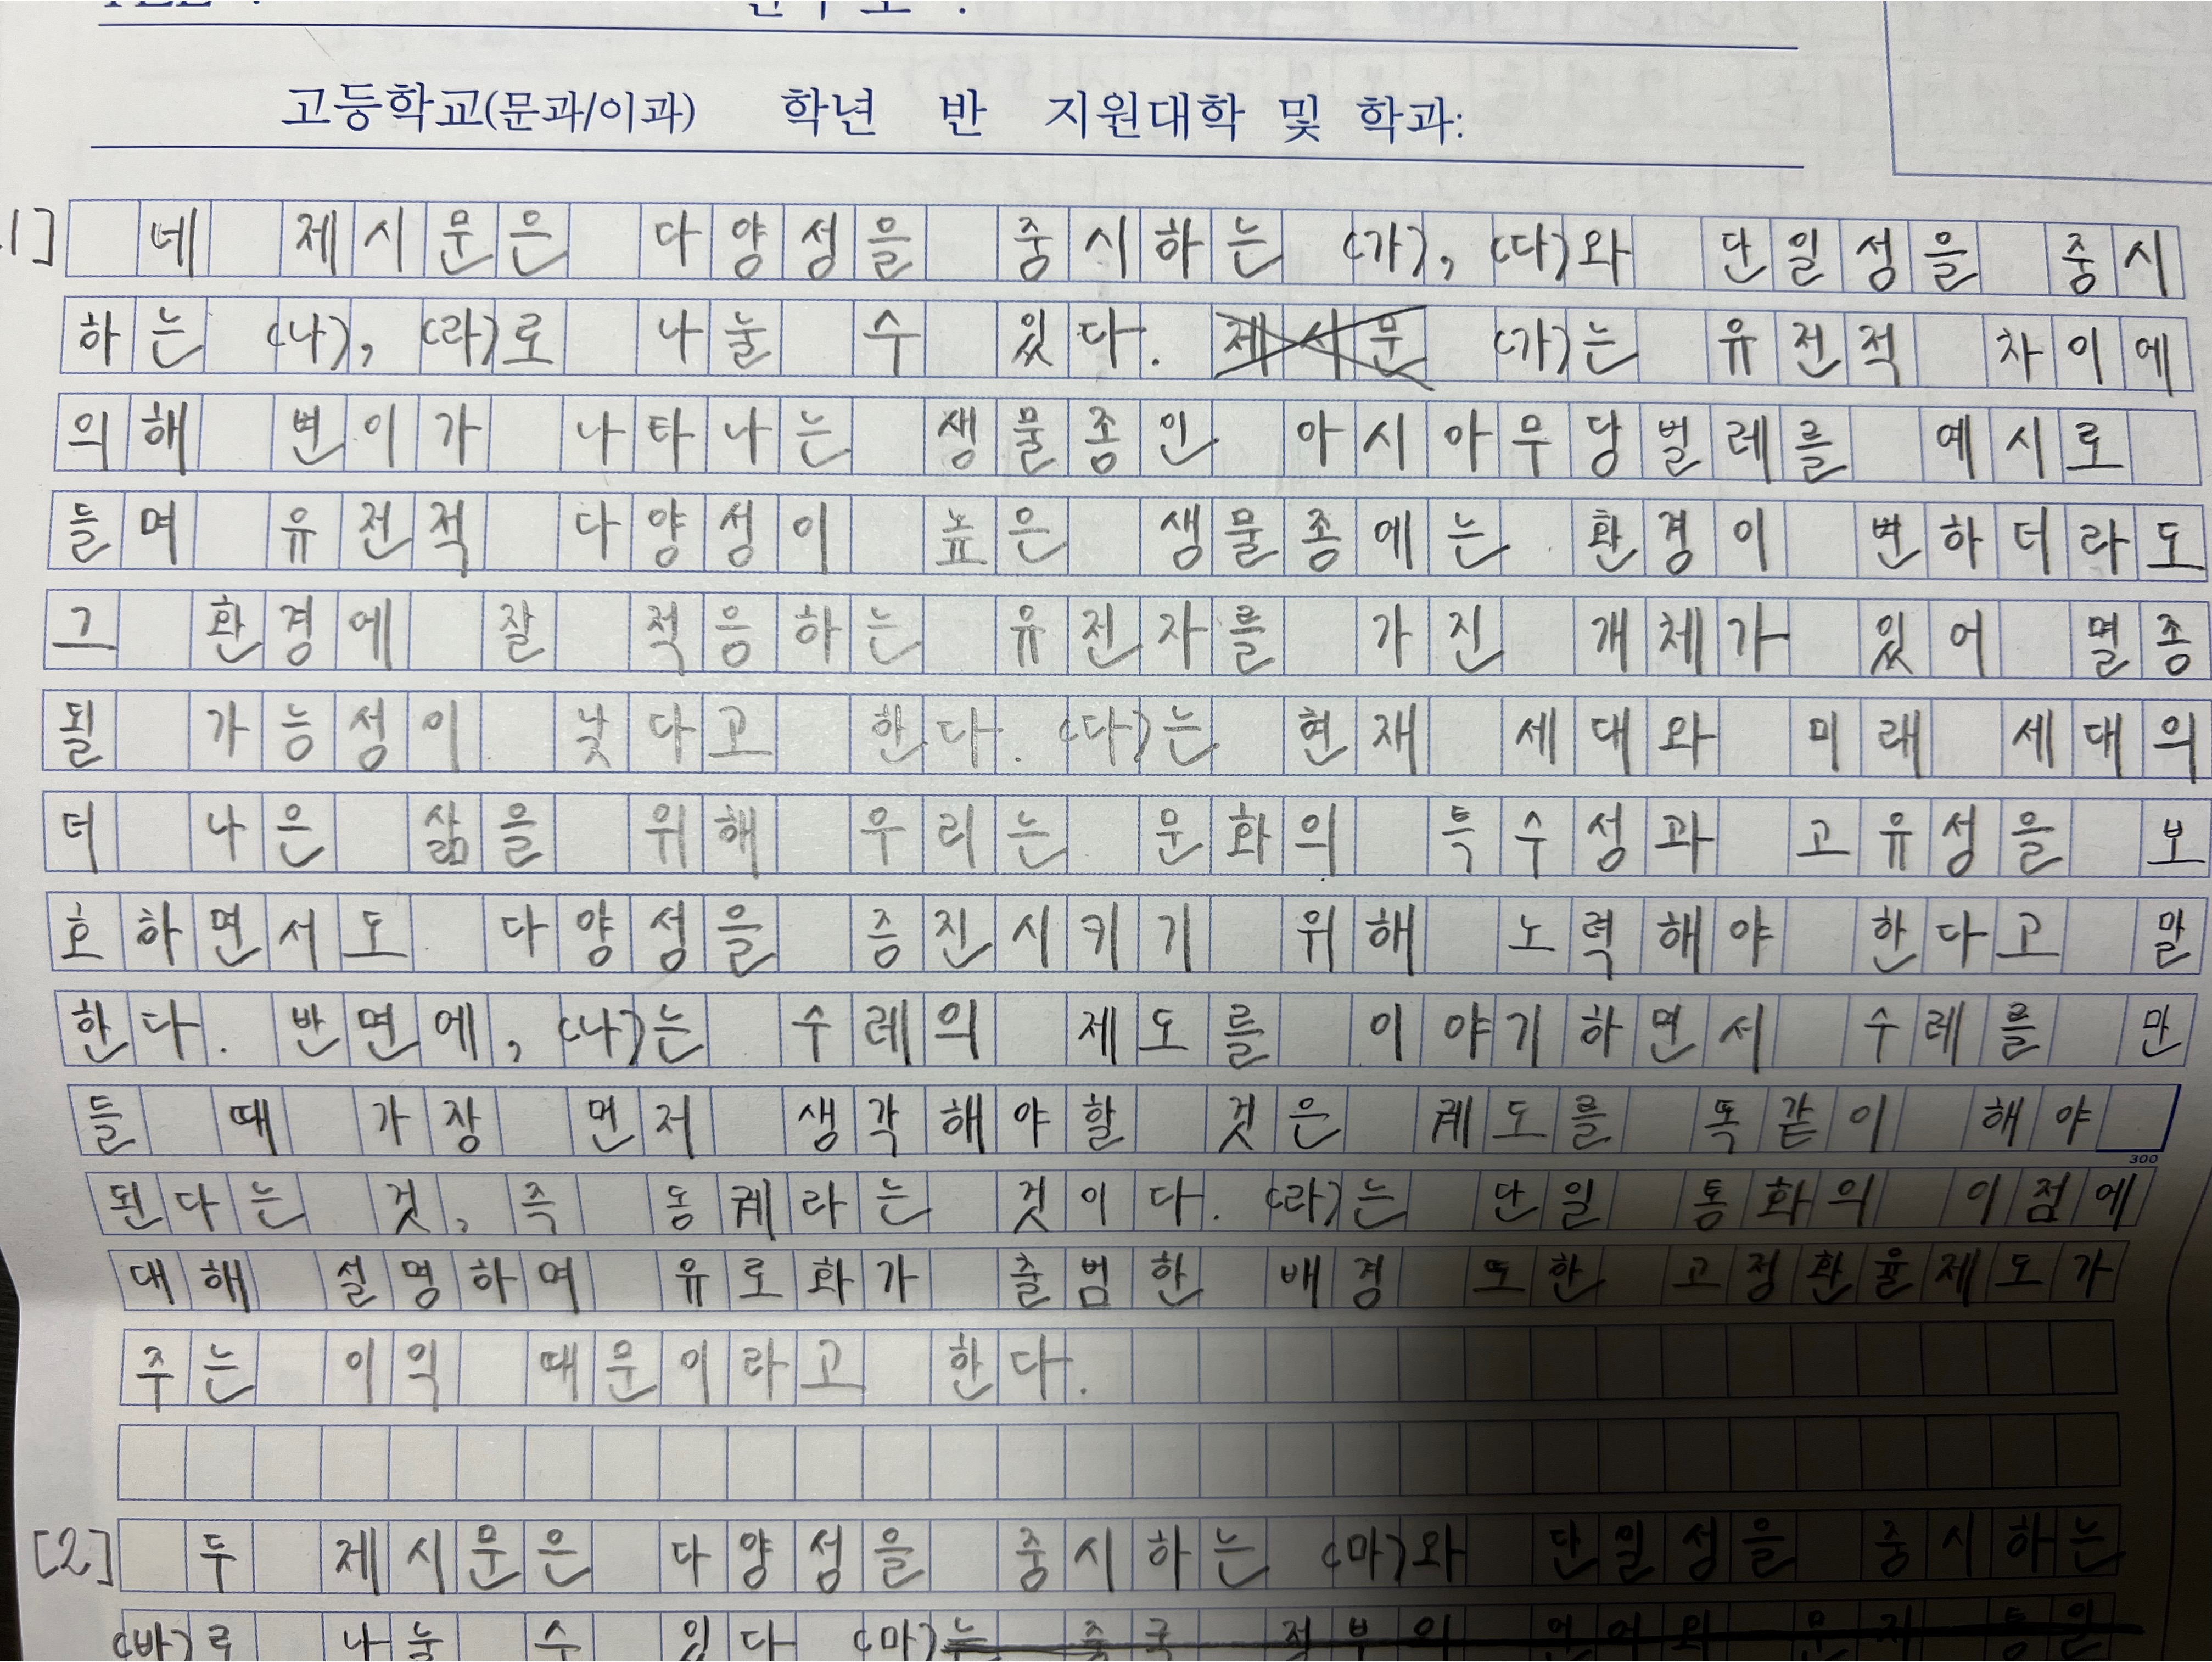 고등학교(문과/이과) 학년 반 지원대학 및 학과:
1] 네 제시문은 다양성을 중시하는 (가), (다)와 단일성을 중시
하는 (나), (라)로 나눌 수 있다. 제시문 (가)는 유전적 차이에
의해 변이가 나타나는 생물종인 아시아무당벌레를 예시로
들며 유전적 다양성이 높은 생물종에는 환경이 변하더라도
그 환경에 잘 적응하는 유전자를 가진 개체가 있어 멸종
될 가능성이 낮다고 한다. (다)는 현재 세대와 미래 세대의
더 나은 삶을 위해 우리는 문화의 특수성과 고유성을 보
호하면서도 다양성을 증진시키기 위해 노력해야 한다고 말
한다. 반면에, (나)는 수레의 제도를 이야기하면서 수레를 만
들 때 가장 먼저 생각해야할 것은 궤도를 똑같이 해야
300
된다는 것, 즉 동궤라는 것이다. (라)는 단일 통화의 이점에
대해 설명하며 유로화가 출범한 배경 또한 고정환율제도가
주는 이익 때문이라고 한다.
[2] 두 제시문은 다양성을 중시하는 (마)와 단일성을 중시하는
(바)로 나눌 수 있다 (마)는 중국 정부의 언어와 문자 통일